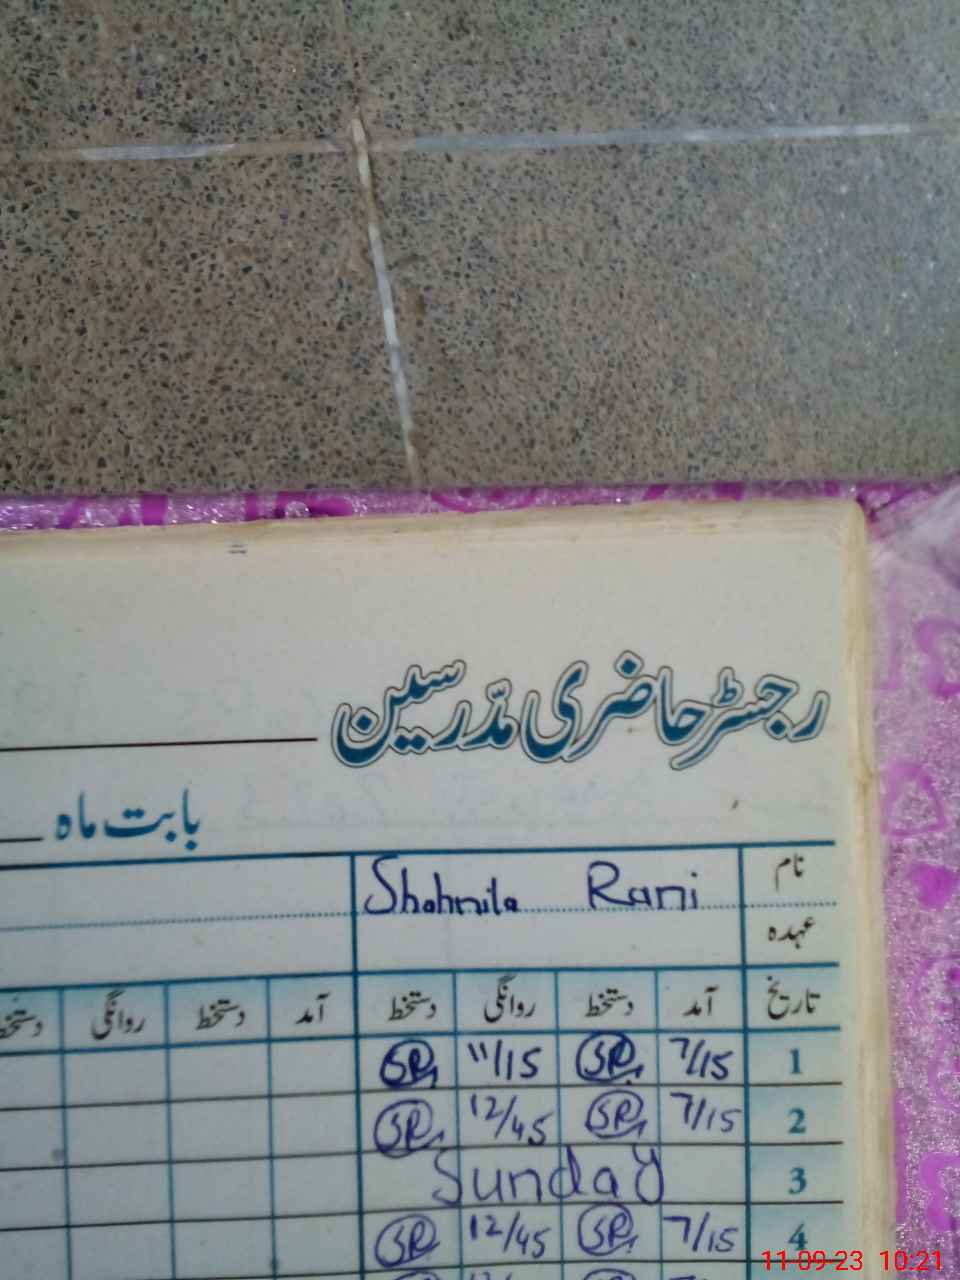 رجسٹر حاضری مدّرسین
بابت ماہ
نام Shahnila Rani
عہدہ
تاریخ آمد دستخط روانگی دستخط آمد دستخط روانگی دستخط
1 7/15 SR 11/15 SR
2 7/15 SR 12/45 SR
3 Sunday
4 7/15 SR 12/45 SR
11-09-23 10:21